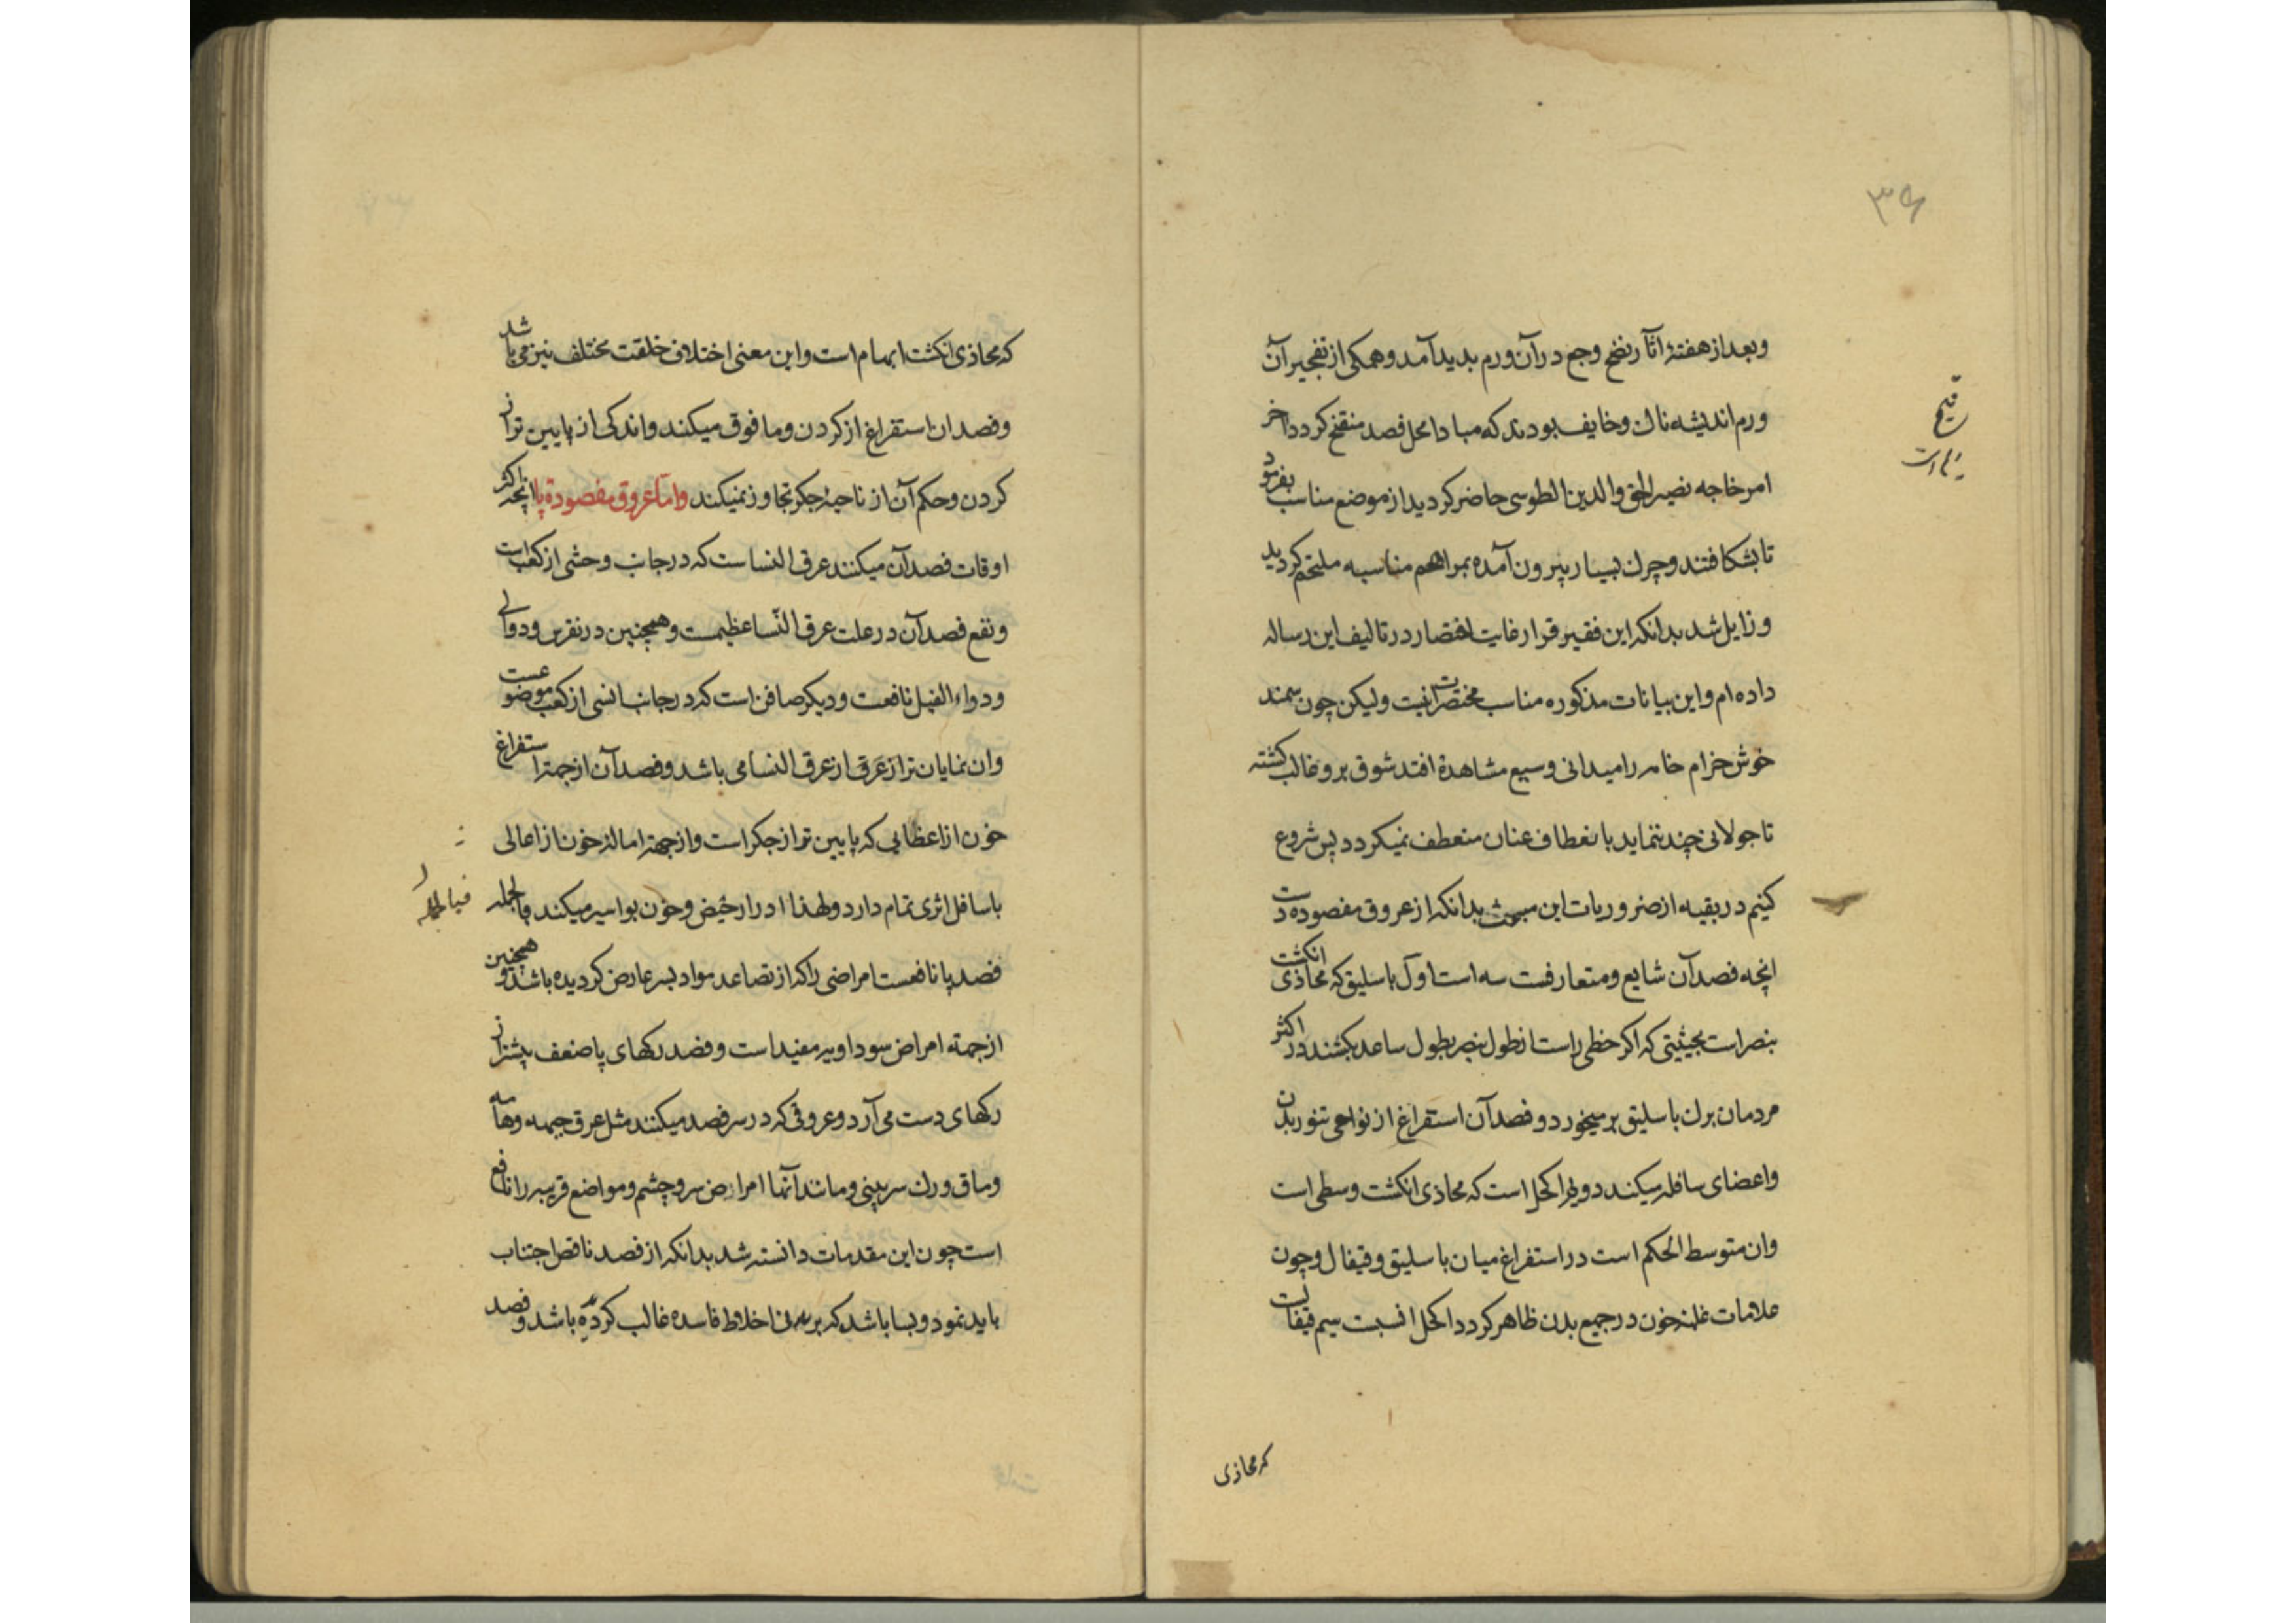 ۳۶
وبعد از هفتهٔ آثار نضج وجع در آن ورم بدید آمد و همکی از تفجیر آن
ورم اندیشه ناک و خایف بودند که مبادا محل فصد منقح کردد اخر
قیح
امر خاجه نصیر الحق والدین الطوسی حاضر کردید از موضع مناسب بفرمود
تا بشکافتند و چرک بسیار بیرون آمده بمراهم مناسبه ملتحم کردید
و زایل شد بدانکه این فقیر قرار غایت اقتصار در تالیف این رساله
داده ام و این بیانات مذکوره مناسب مختصرات نیست ولیکن چون سمند
خوش خرام خامه را میدانی وسیع مشاهدة افتد شوق برو غالب کشته
تا جولانی چند ننماید بانعطاف عنان منعطف نمیکردد پس شروع
کنیم در بقیه از ضروریات این مبحث بدانکه از عروق مفصوده دست
انچه فصد آن شایع و متعارفست سه است اول باسلیق که محاذی انکشت
بنصر است بحیثیتی که اکر خطی راست از طول بنصر بطول ساعد بکشند در اکثر
مردمان برک باسلیق بر میخورد و فصد آن استفراغ از نواحی تنور بدن
واعضای سافله میکند دویم اکحل است که محاذی انکشت وسطی است
وان متوسط الحکم است در استفراغ میان باسلیق و قیفال و چون
علامات غلبهٔ خون در جمیع بدن ظاهر کردد اکحل انسبت سیم قیفالست
که محاذی
که محاذی انکشت ابهام است و این معنی اختلاف خلقت مختلف نیز می باشد
وفصد ان استفراغ از کردن و ما فوق میکند و اندکی از پایین تر از
کردن و حکم آن از ناحیهٔ جکر تجاوز نمیکند واما عروق مفصودة پا انچه اکثر
اوقات فصد آن میکنند عرق النسا ست که در جانب وحشی از کعب است
و نفع فصد آن در علت عرق النسا عظیمست و همچنین در نقرس و دوالی
و دواء الفیل نافعست و دیکر صافن است که در جانب انسی از کعب موضوعست
وان نمایان تر از عرق از عرق النسا می باشد و فصد آن از جهة استفراغ
خون از اعظایی که پایین تر از جکر است و از جهة امالهٔ خون از اعالی
باسافل اثری تمام دارد و لهذا ادرار حیض و خون بواسیر میکند فالجمله
فبالجمله
فصد پا نافعست امراضی را که از تصاعد مواد بسر عارض کردیده باشد و همچنین
از جهة امراض سوداویه مفید است و فصد رکهای پا ضعف بیشتر از
رکهای دست می آرد و عروقی که در سر فصد میکنند مثل عرق جبهه و هامه
وماق و رک سر بینی و مانند آنها امراض سر و چشم و مواضع قریبه را نافع
است چون این مقدمات دانسته شد بدانکه از فصد ناقص اجتناب
باید نمود و بسا باشد که بر بدنی اخلاط فاسده غالب کردیده باشد و فصد